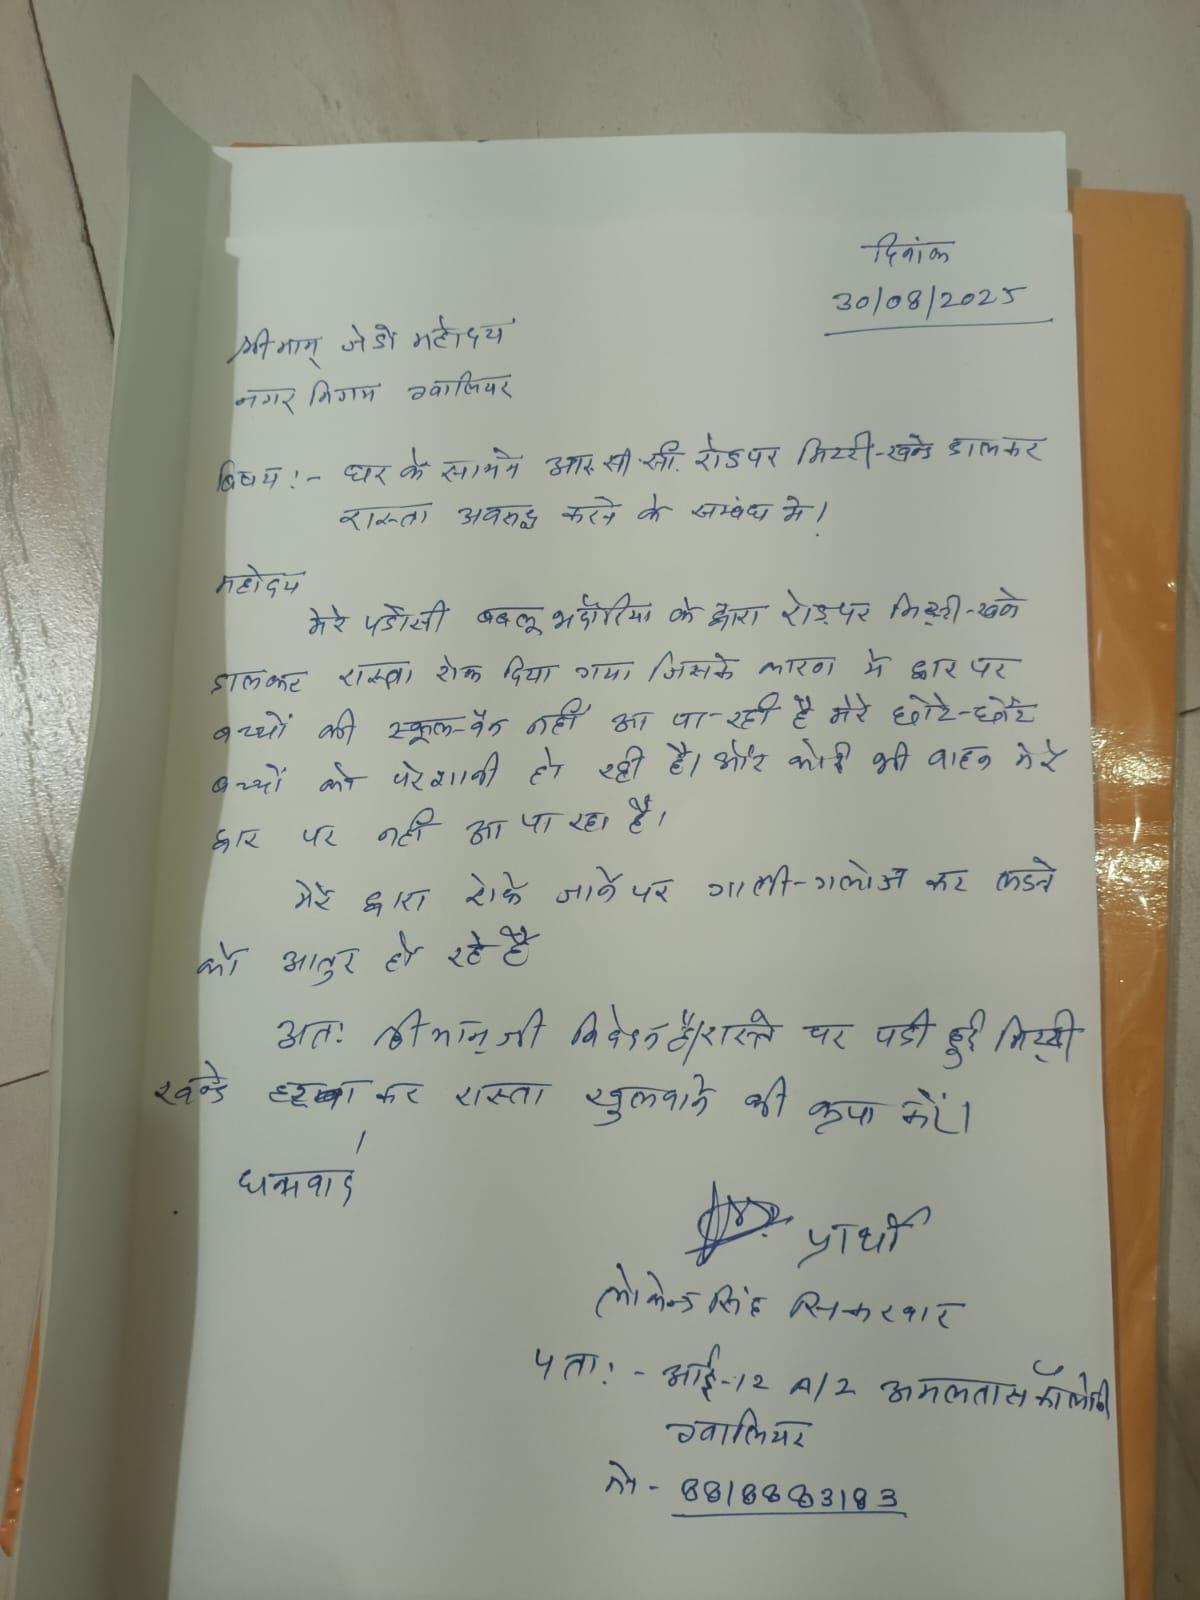 दिनांक
30/08/2025
श्रीमान् जेडो महोदय
नगर निगम ग्वालियर
विषय:- घर के सामने आर.सी.सी. रोड पर मिट्टी-खन्डे डालकर
रास्ता अवरुद्ध करने के सम्बंध मे।
महोदय
मेरे पडोसी बबलू भदौरिया के द्वारा रोड़ पर मिट्टी-खन्डे
डालकर रास्ता रोक दिया गया जिसके कारण मे द्वार पर
बच्चों की स्कूल-वैन नहीं आ पा-रही है मेरे छोटे-छोटे
बच्चों को परेशानी हो रही है। और कोई भी वाहन मेरे
द्वार पर नहीं आ पा रहा है।
मेरे द्वारा रोके जाने पर गाली-गलोज कर लडने
को आतुर हो रहे है
अत: श्रीमान् जी निवेदन है। रास्ते पर पडी हुई मिट्टी
खन्डे हटवा कर रास्ता खुलवाने की कृपा करें।
धन्यवाद
प्रार्थी
लोकेन्द्र सिंह सिकरवार
पता:- आई-12 A/2 अमलतास कॉलोनी
ग्वालियर
मो- 8818883183